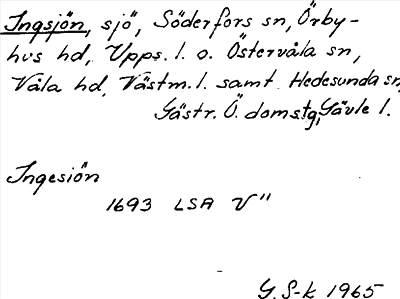 Ingsjön, sjö, Söderfors sn, Örby-
hus hd, Upps. l. o. Östervåla sn,
Våla hd, Västm. l. samt Hedesunda sn,
Gästr. Ö. domstg, Gävle l.
Ingesiön
1693 LSA V"
G. S-k 1965